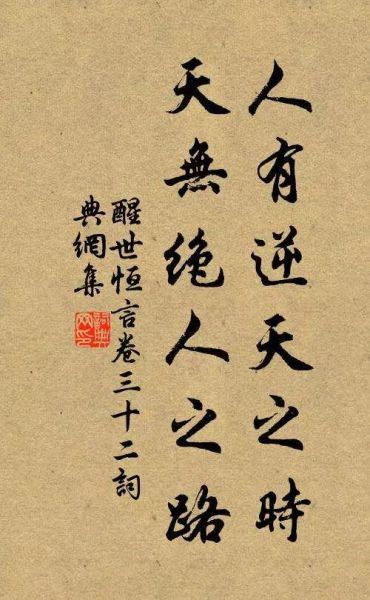 人有逆天之時
天無絶人之路
醒世恒言卷三十二詞
典網集